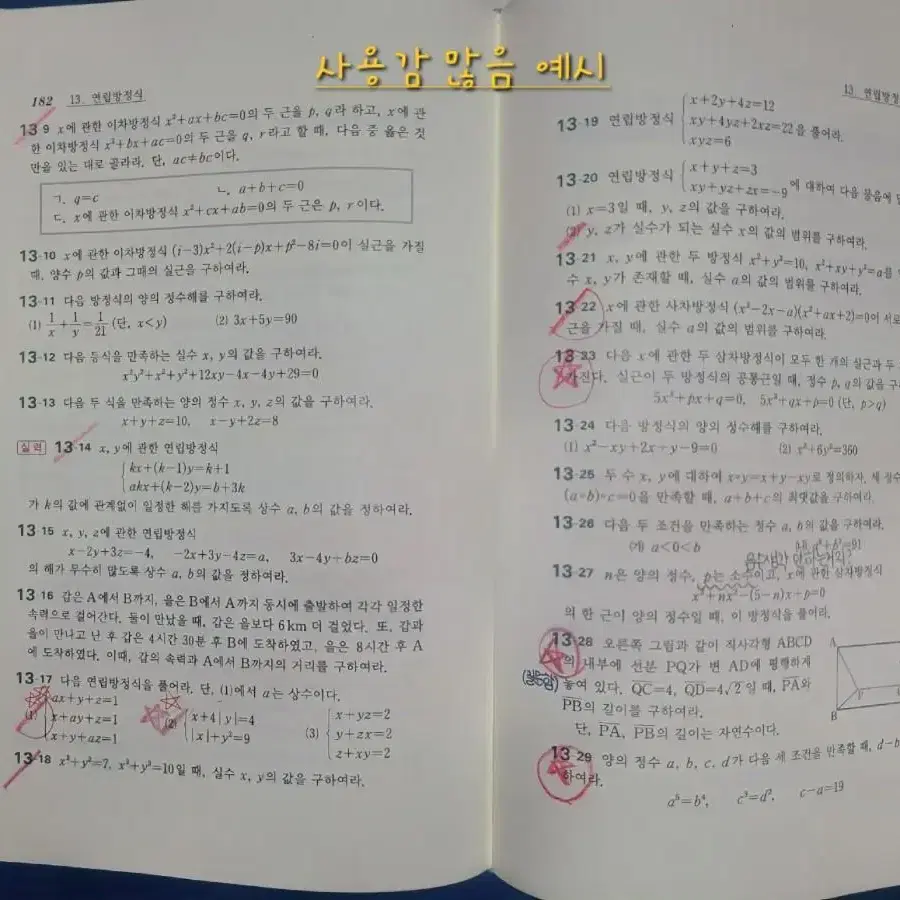 사용감 많음 예시
182 13. 연립방정식
13-9 x에 관한 이차방정식 x²+ax+bc=0의 두 근을 p, q라 하고, x에 관
한 이차방정식 x²+bx+ac=0의 두 근을 q, r라고 할 때, 다음 중 옳은 것
만을 있는 대로 골라라. 단, ac≠bc이다.
ㄱ. q=c ㄴ. a+b+c=0
ㄷ. x에 관한 이차방정식 x²+cx+ab=0의 두 근은 p, r이다.
13-10 x에 관한 이차방정식 (i-3)x²+2(i-p)x+p²-8i=0이 실근을 가질
때, 양수 p의 값과 그때의 실근을 구하여라.
13-11 다음 방정식의 양의 정수해를 구하여라.
(1) 1/x+1/y=1/21 (단, x<y) (2) 3x+5y=90
13-12 다음 등식을 만족하는 실수 x, y의 값을 구하여라.
x²y²+x²+y²+12xy-4x-4y+29=0
13-13 다음 두 식을 만족하는 양의 정수 x, y, z의 값을 구하여라.
x+y+z=10, x-y+2z=8
실력 13-14 x, y에 관한 연립방정식
kx+(k-1)y=k+1
akx+(k-2)y=b+3k
가 k의 값에 관계없이 일정한 해를 가지도록 상수 a, b의 값을 정하여라.
13-15 x, y, z에 관한 연립방정식
x-2y+3z=-4, -2x+3y-4z=a, 3x-4y+bz=0
의 해가 무수히 많도록 상수 a, b의 값을 정하여라.
13-16 갑은 A에서 B까지, 을은 B에서 A까지 동시에 출발하여 각각 일정한
속력으로 걸어간다. 둘이 만났을 때, 갑은 을보다 6km 더 걸었다. 또, 갑과
을이 만나고 난 후 갑은 4시간 30분 후 B에 도착하였고, 을은 8시간 후 A
에 도착하였다. 이때, 갑의 속력과 A에서 B까지의 거리를 구하여라.
13-17 다음 연립방정식을 풀어라. 단, (1)에서 a는 상수이다.
ax+y+z=1 x+yz=2
(1) x+ay+z=1 (2) x+4|y|=4 (3) y+zx=2
x+y+az=1 |x|+y²=9 z+xy=2
13-18 x²+y²=7, x³+y³=10일 때, 실수 x, y의 값을 구하여라.
13. 연립방정
x+2y+4z=12
13-19 연립방정식 xy+4yz+2xz=22를 풀어라.
xyz=6
x+y+z=3
13-20 연립방정식 에 대하여 다음 물음에
xy+yz+zx=-9
(1) x=3일 때, y, z의 값을 구하여라.
(2) y, z가 실수가 되는 실수 x의 값의 범위를 구하여라.
13-21 x, y에 관한 두 방정식 x²+y²=10, x²+xy+y²=a를
수 x, y가 존재할 때, 실수 a의 값의 범위를 구하여라.
13-22 x에 관한 사차방정식 (x²-2x-a)(x²+ax+2)=0이 서로
근을 가질 때, 실수 a의 값의 범위를 구하여라.
13-23 다음 x에 관한 두 삼차방정식이 모두 한 개의 실근과 두
가진다. 실근이 두 방정식의 공통근일 때, 정수 p, q의 값을 구
5x³+px+q=0, 5x³+qx+p=0 (단, p>q)
13-24 다음 방정식의 양의 정수해를 구하여라.
(1) x²-xy+2x-y-9=0 (2) x²+6y²=360
13-25 두 수 x, y에 대하여 x∘y=x+y-xy로 정의하자. 세 정수
(a∘b)∘c=0을 만족할 때, a+b+c의 최댓값을 구하여라.
13-26 다음 두 조건을 만족하는 정수 a, b의 값을 구하여라.
(가) a<0<b
13-27 n은 양의 정수, p는 소수이고, x에 관한 삼차방정식
x³+nx²-(5-n)x+p=0
의 한 근이 양의 정수일 때, 이 방정식을 풀어라.
13-28 오른쪽 그림과 같이 직사각형 ABCD
의 내부에 선분 PQ가 변 AD에 평행하게
놓여 있다. QC=4, QD=4√2일 때, PA와
PB의 길이를 구하여라.
단, PA, PB의 길이는 자연수이다.
A
B
P
13-29 양의 정수 a, b, c, d가 다음 세 조건을 만족할 때, d-b
하여라.
a⁵=b⁴, c³=d², c-a=19